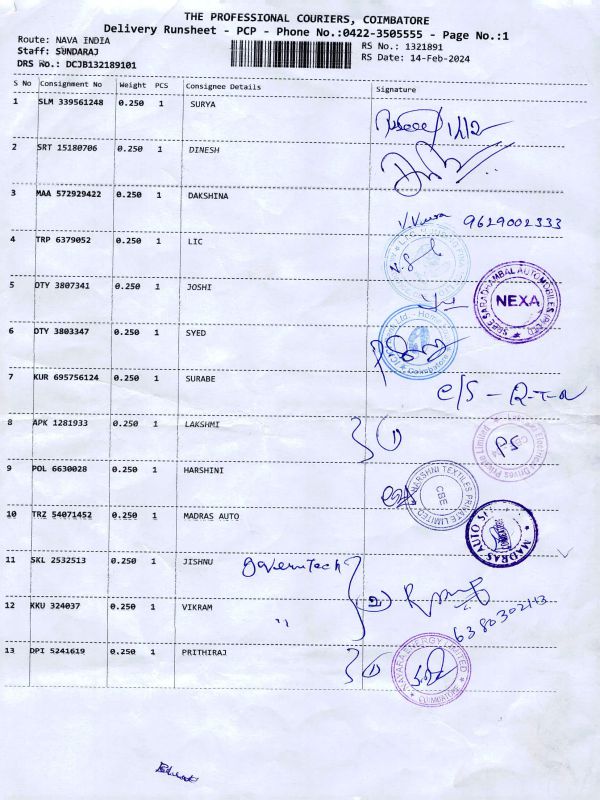 THE PROFESSIONAL COURIERS, COIMBATORE
Delivery Runsheet - PCP - Phone No.:0422-3505555 - Page No.:1
Route: NAVA INDIA
Staff: SUNDARAJ
DRS No.: DCJB132189101
RS No.: 1321891
RS Date: 14-Feb-2024
S No Consignment No Weight PCS Consignee Details Signature
1 SLM 339561248 0.250 1 SURYA
2 SRT 15180706 0.250 1 DINESH
3 MAA 572929422 0.250 1 DAKSHINA
9629002333
4 TRP 6379052 0.250 1 LIC
5 DTY 3807341 0.250 1 JOSHI
SREE SARADHAMBAL AUTOMOBILES (P) LTD
NEXA
6 DTY 3803347 0.250 1 SYED
7 KUR 695756124 0.250 1 SURABE
8 APK 1281933 0.250 1 LAKSHMI
Private Limited
9 POL 6630028 0.250 1 HARSHINI
HARSHNI TEXTILES PRIVATE LIMITED
CBE
10 TRZ 54071452 0.250 1 MADRAS AUTO
MADRAS AUTO
11 SKL 2532513 0.250 1 JISHNU
12 KKU 324037 0.250 1 VIKRAM "
13 DPI 5241619 0.250 1 PRITHIRAJ
NAYARA ENERGY LIMITED
COIMBATORE